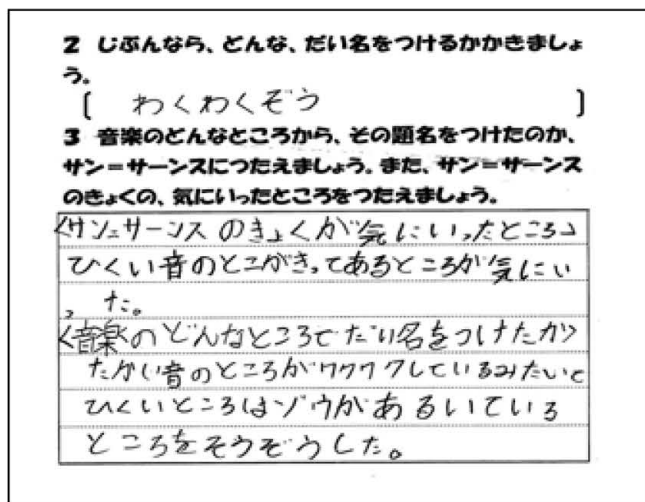 2 じぶんなら、どんな、だい名をつけるかかきましょ
う。
[ わくわくぞう ]
3 音楽のどんなところから、その題名をつけたのか、
サン=サーンスにつたえましょう。また、サン=サーンス
のきょくの、気にいったところをつたえましょう。
<サン=サーンスのきょくが気にいったところ>
ひくい音のとこがきってあるところが気にい
った。
<音楽のどんなところでだい名をつけたか>
たかい音のところがワクワクしているみたいで
ひくいところはゾウがあるいている
ところをそうぞうした。